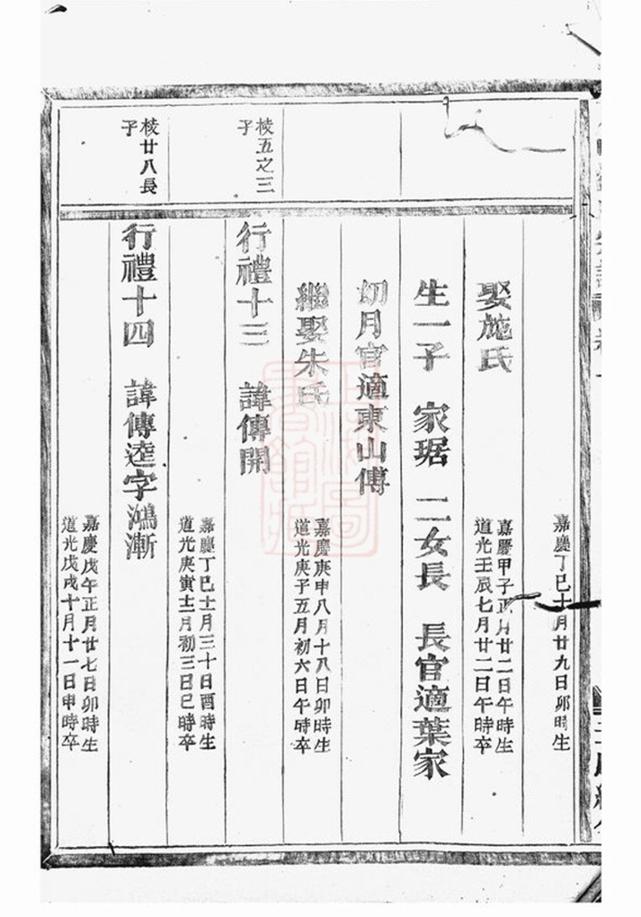 嘉慶丁巳十月廿九日卯時生
娶施氏
嘉慶甲子正月廿二日午時生
道光壬辰七月廿二日午時卒
生一子 家琚 二女長 長官適葉家
幼月官適東山傅
繼娶朱氏
嘉慶庚申八月十八日卯時生
道光庚子五月初六日午時卒
棱五之三子
行禮十三 諱傳開
嘉慶丁巳十一月三十日酉時生
道光庚寅十二月初三日巳時卒
棱廿八長子
行禮十四 諱傳逵字鴻漸
嘉慶戊午正月廿七日卯時生
道光戊戌十月十一日申時卒